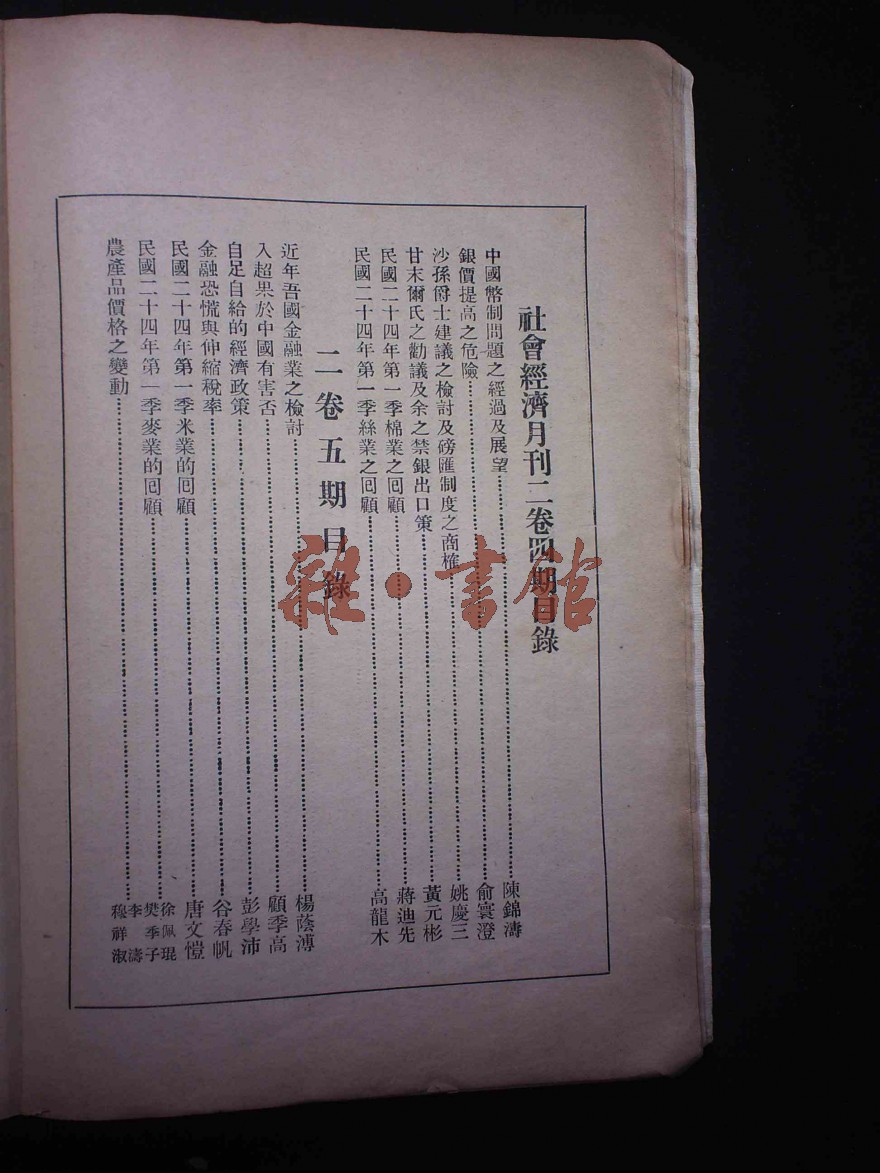 社會經濟月刊二卷四期目錄
中國幣制問題之經過及展望……陳錦濤
銀價提高之危險……俞寰澄
沙孫爵士建議之檢討及磅匯制度之商榷……姚慶三
甘末爾氏之勸議及余之禁銀出口策……黃元彬
民國二十四年第一季棉業之回顧……蔣迪先
民國二十四年第一季絲業之回顧……高龍木
二卷五期目錄
近年吾國金融業之檢討……楊蔭溥
入超果於中國有害否……顧季高
自足自給的經濟政策……彭學沛
金融恐慌與伸縮稅率……谷春帆
民國二十四年第一季米業的回顧……唐文愷
民國二十四年第一季麥業的回顧……徐佩琨 樊季子
農產品價格之變動……李濤 穆祥淑
雜·書館